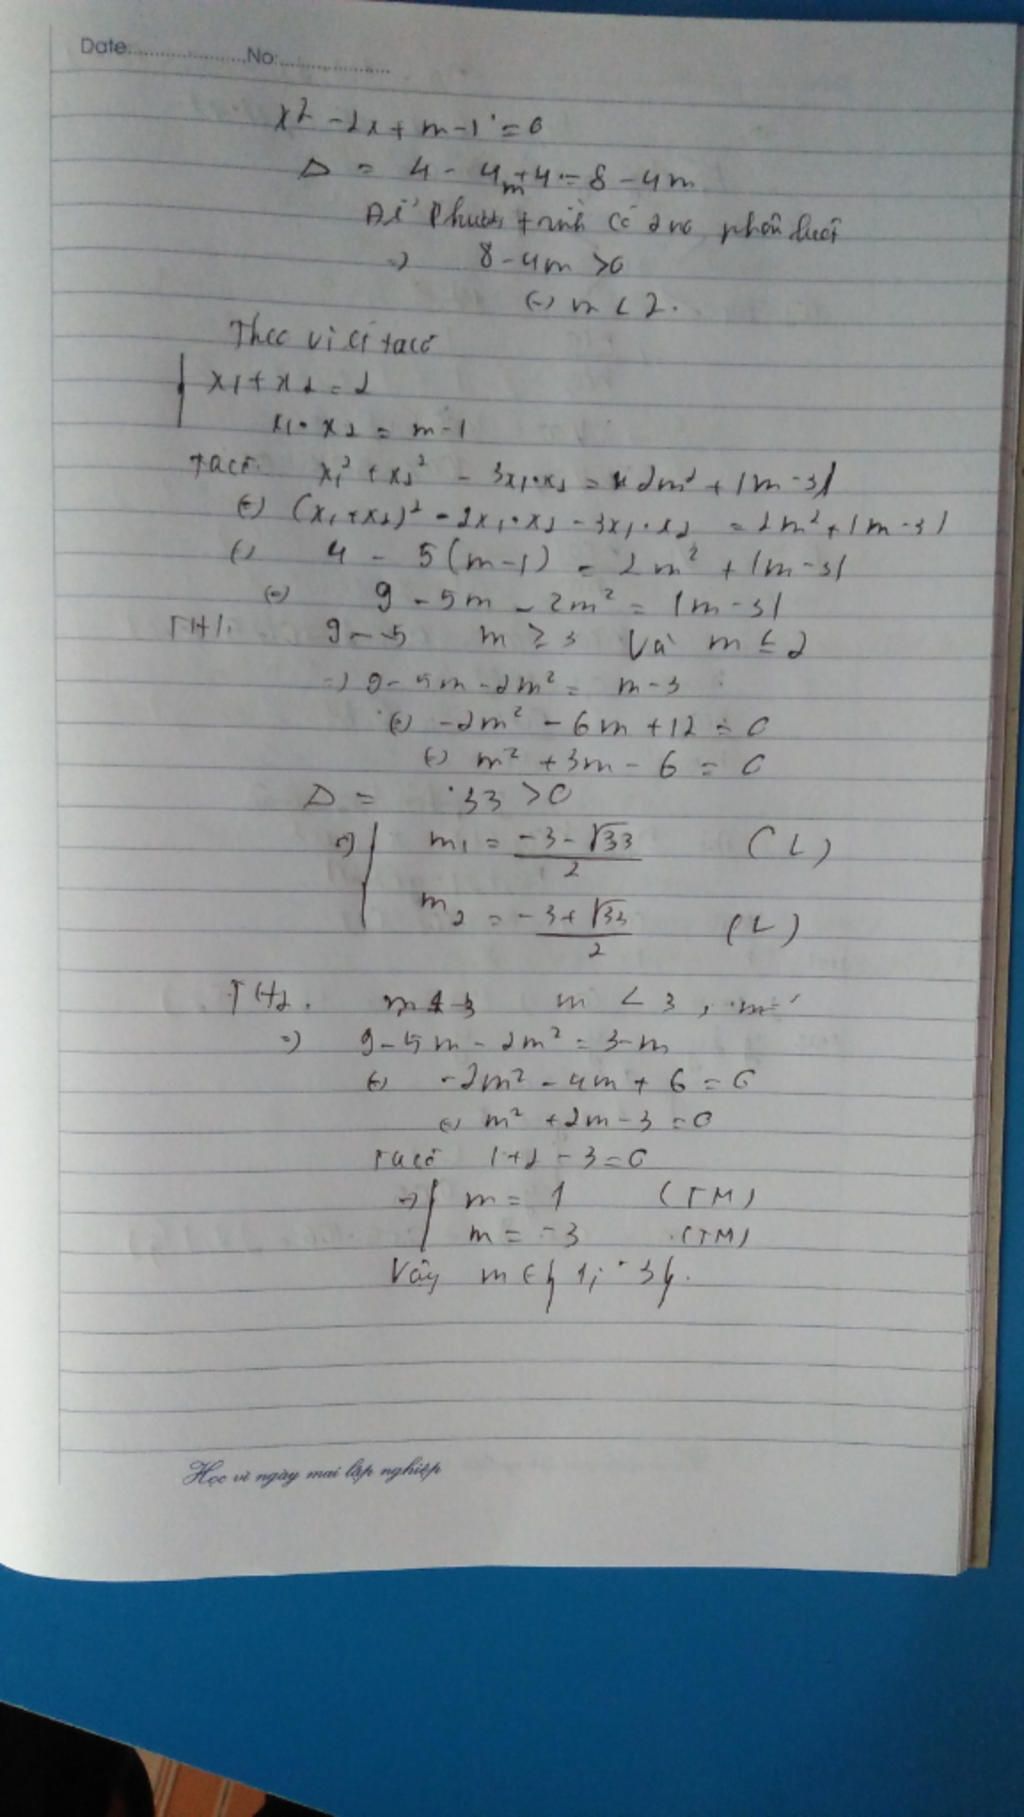 Date:....................,No:...................
x² - 2x + m - 1 = 0
Δ = 4 - 4m + 4 = 8 - 4m
Để phương trình có 2 no phân biệt
=> 8 - 4m > 0
(=) m < 2.
Theo vi ét ta có
x₁ + x₂ = 2
x₁ . x₂ = m - 1
Ta có x₁² + x₂² - 3x₁.x₂ = 2m² + |m - 3|
(=) (x₁ + x₂)² - 2x₁.x₂ - 3x₁.x₂ = 2m² + |m - 3|
(=) 4 - 5(m - 1) = 2m² + |m - 3|
(=) 9 - 5m - 2m² = |m - 3|
TH1. 9 - 5 m ≥ 3 và m ≤ 2
=> 9 - 5m - 2m² = m - 3
(=) -2m² - 6m + 12 = 0
(=) m² + 3m - 6 = 0
Δ = 33 > 0
=> m₁ = (-3 - √33)/2 (L)
m₂ = (-3 + √33)/2 (L)
TH2. m < 3, m
=> 9 - 5m - 2m² = 3 - m
(=) -2m² - 4m + 6 = 0
(=) m² + 2m - 3 = 0
Ta có 1 + 2 - 3 = 0
=> m = 1 (TM)
m = -3 (TM)
Vậy m ∈ {1; -3}.
Học vì ngày mai lập nghiệp